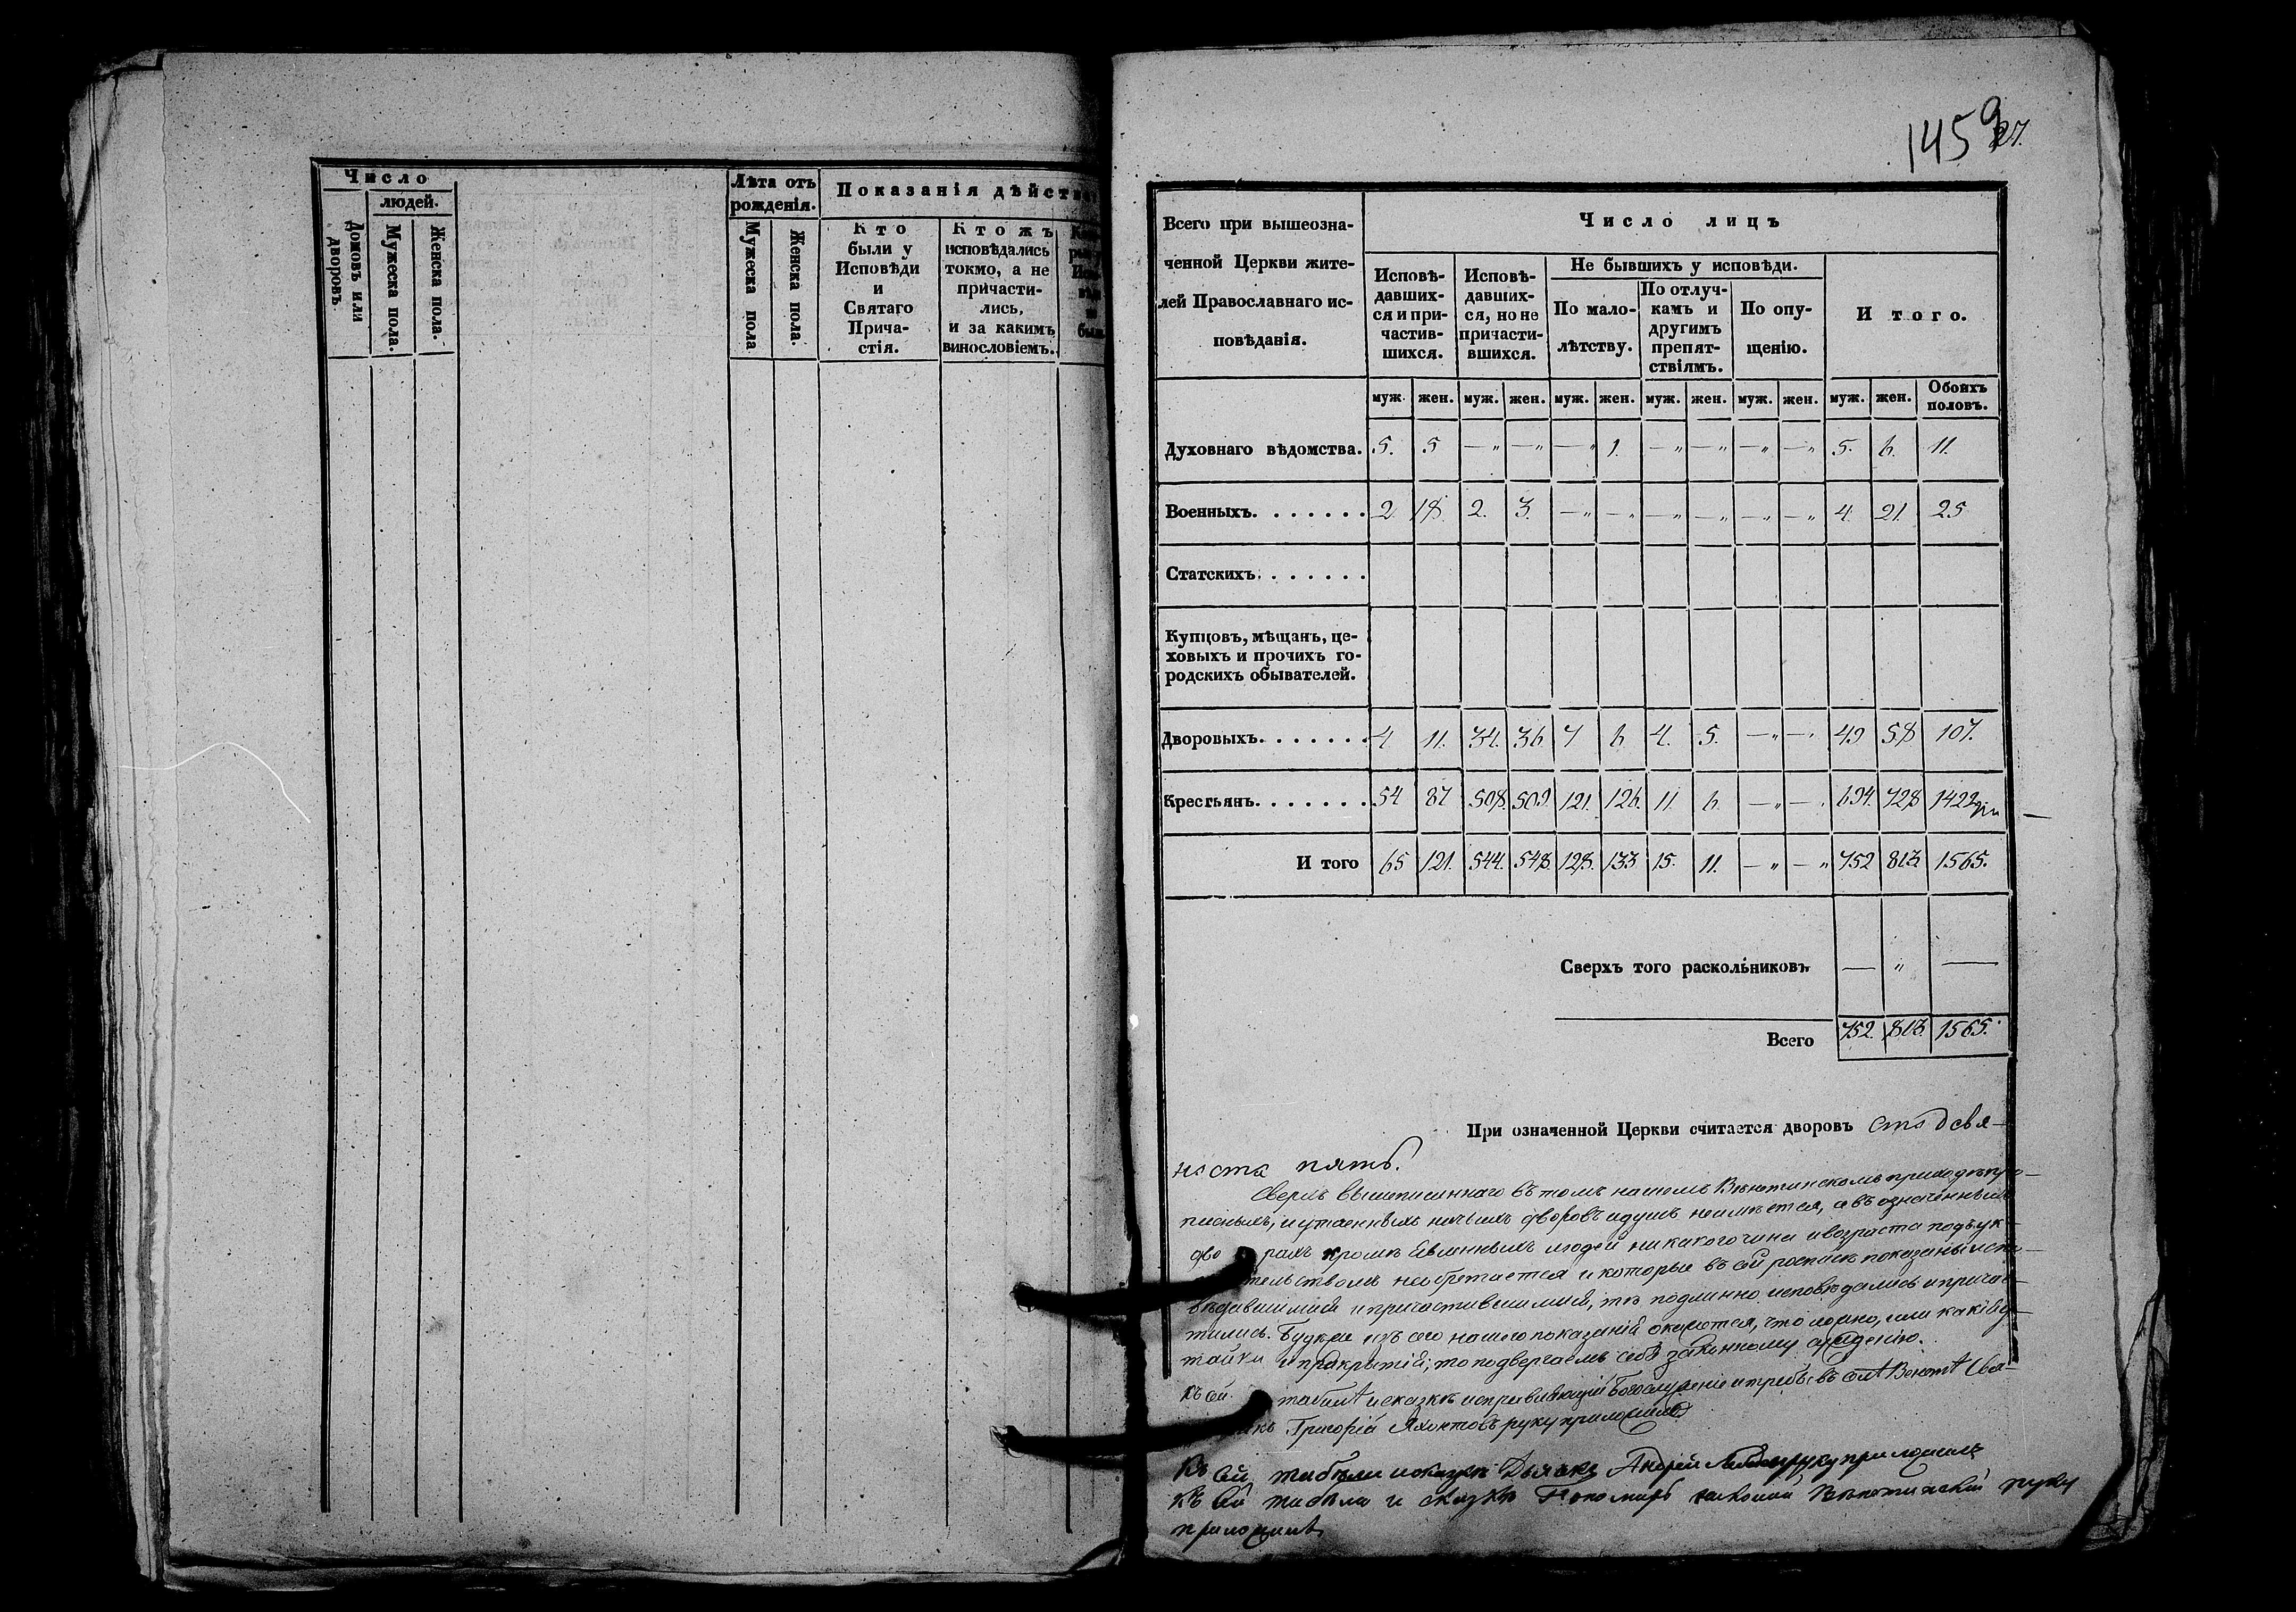 Число
людей.
Домовъ или дворовъ
Мужеска пола.
Женска пола.
Лѣта отъ рожденія.
Мужеска пола
Женска пола.
Показанія дѣйст
Кто
были у
Исповѣди
и
Святаго
Прича-
стія.
Кто жъ
исповѣдались
токмо, а не
причасти-
лись,
и за какимъ
винословіемъ.
1459
27.
Всего при вышеозна-
ченной Церкви жите-
лей Православнаго ис-
повѣданія.
Число лицъ
Исповѣ-
давших-
ся и при-
частив-
шихся.
Исповѣ-
давших-
ся, но не
причасти-
вшихся.
Не бывшихъ у исповѣди.
По мало-
лѣтству.
По отлуч-
камъ и
другимъ
препят-
ствіямъ.
По опу-
щенію.
И того.
муж. жен. муж. жен. муж. жен. муж. жен. муж. жен. муж. жен. Обоихъ половъ.
Духовнаго вѣдомства. 5. 5 — „ — „ — „ 1. — „ — „ — „ — „ 5. 6. 11.
Военныхъ. . . . . . . 2. 18. 2. 3. — „ — „ — „ — „ — „ — „ 4. 21. 25
Статскихъ. . . . . . .
Купцовъ, мѣщанъ, це-
ховыхъ и прочихъ го-
родскихъ обывателей.
Дворовыхъ. . . . . . . 4 11. 34. 36 7 6 4. 5. — „ — „ 49 58 107.
Крестьянъ. . . . . . . 54 87 508. 509. 121. 126. 11 6. — „ — „ 694. 728 1422
И того 65 121. 544. 548. 128. 133 15. 11. — „ — „ 752 813 1565.
Сверхъ того раскольниковъ — „ —
Всего 752. 813. 1565.
При означенной Церкви считается дворовъ сто девя-
носта пять.
Сверхъ вышеписаннаго въ томъ нашемъ приходѣ про-
писныхъ, и утаенныхъ ничьихъ дворовъ и душъ неимѣется, а въ означенныхъ
дво рахъ кромѣ явленныхъ людей никакого чина и возраста подъ ук-
тельствомъ необретается и которые въ сей росписи показаны испо-
вѣдавшимися и причастившимися, тѣ подлинно исповѣдались и причас-
тились. Буде же изъ сего нашего показанія окажется, что ложно, или какія у-
тайки и прикрытія; то подвергаемъ себя законному сужденію.
Къ сей табели и сказкѣ исправляющій Богослуженіе и требы въ селѣ Свя-
къ Григорій Яхонтовъ руку приложилъ
Къ сей табели и сказкѣ Дьячекъ Андрей руку приложилъ
Къ сей табели и сказкѣ Пономарь руку
приложилъ